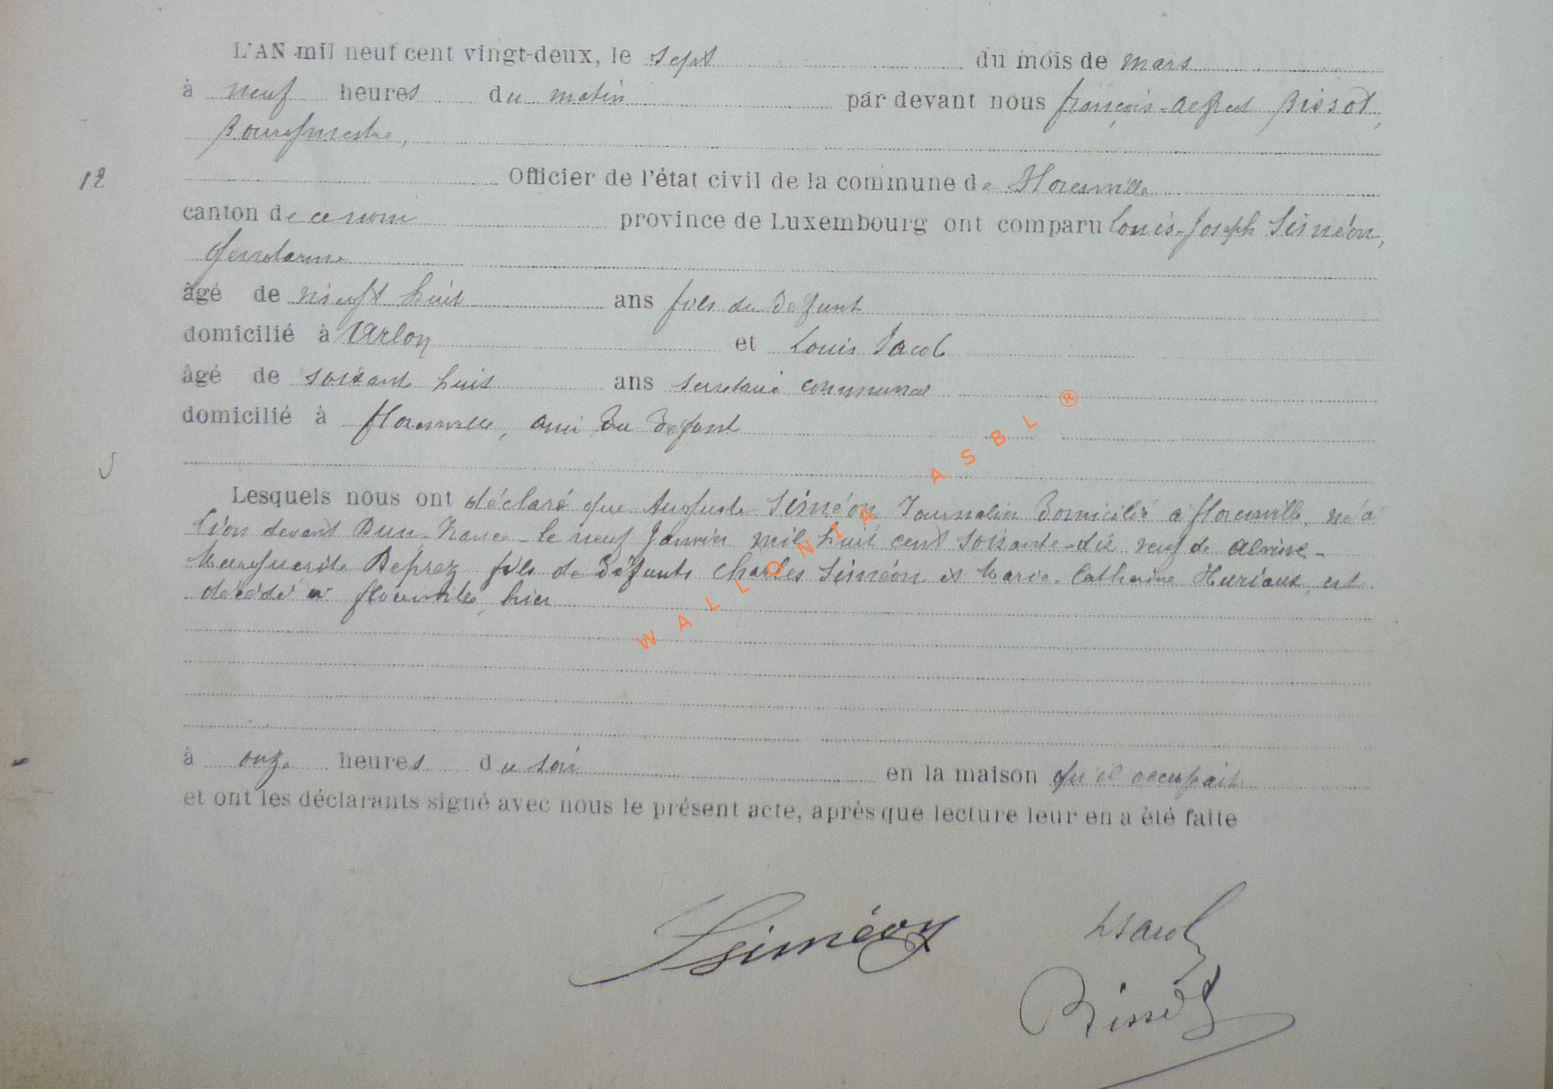 L'AN mil neuf cent vingt-deux, le sept du mois de mars
à neuf heures du matin par devant nous françois-alfred Bissot,
Bourgmestre,
12
Officier de l'état civil de la commune de Florenville
canton de ce nom province de Luxembourg ont comparu Louis-Joseph Siméon,
Gendarme
âgé de vingt huit ans fils du défunt
domicilié à Arlon et Louis Jacob
âgé de soixante huit ans secrétaire communal
domicilié à florenville, ami du défunt
Lesquels nous ont déclaré que Auguste Siméon Journalier domicilié à florenville, né à
Lion devant Dun-France le neuf Janvier mil huit cent soixante-dix
Marguerite Deprez fils de défunts Charles Siméon et Marie-Catherine Huriaux, est
décédé à florenville, hier
à onze heures du soir en la maison qu'il occupait
et ont les déclarants signé avec nous le présent acte, après que lecture leur en a été faite
LSiméon
LJacob
Bissot
WALLONIA ASBL ®